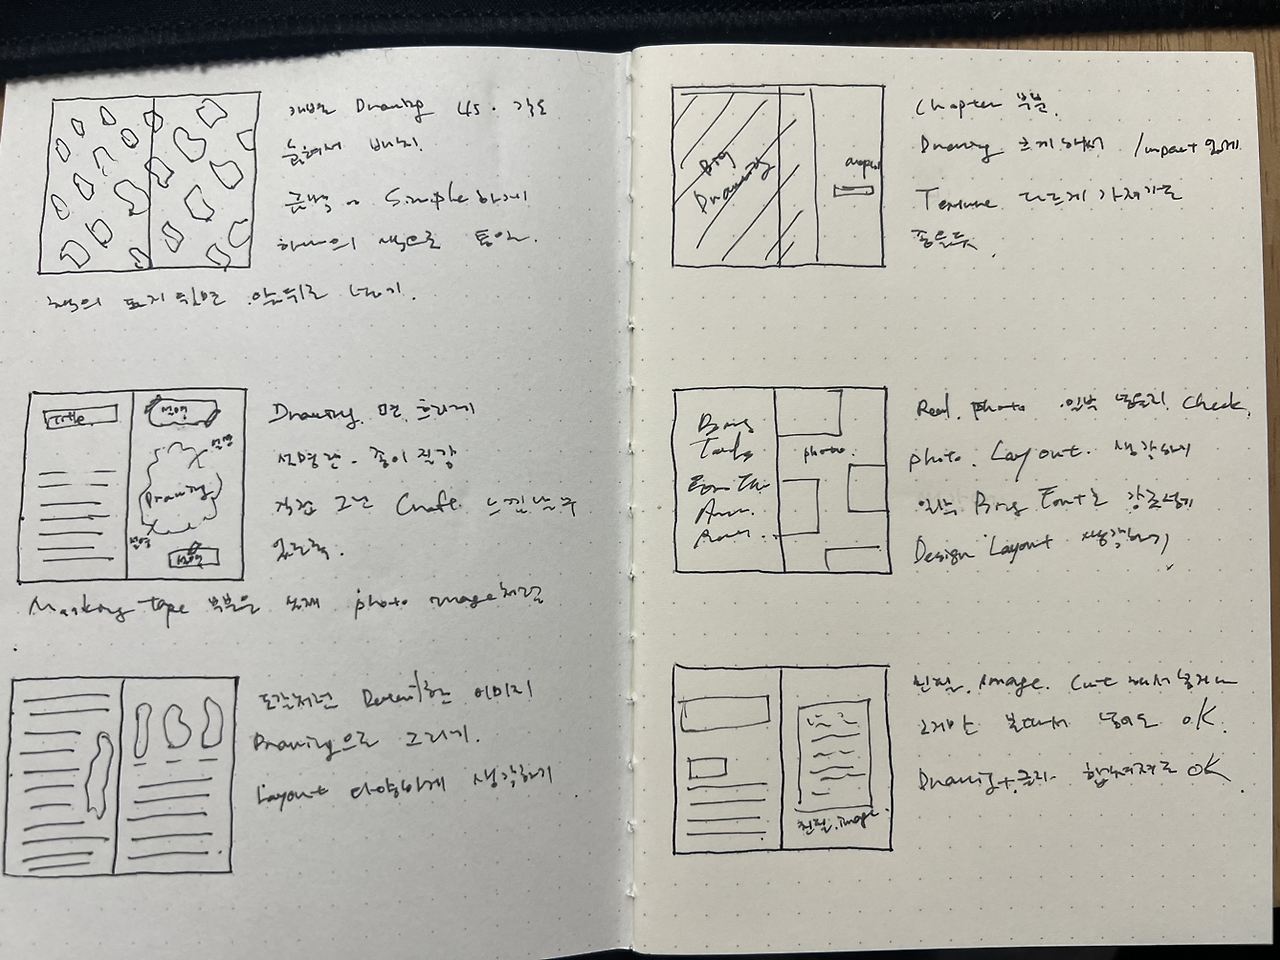 개별 Drawing 45° 각도
눕혀서 배치.
Simple 하게
하나의 색으로 통일.
책의 표지 뒷면 앞뒤로 넣기.
Title
설명
설명
Drawing
설명
설명
Drawing
설명란. 종이 질감
직접 그린 Craft 느낌 나
Masking tape 부분은 실제 photo image처럼
도감처럼 Detail한 이미지
Drawing으로 그리기.
Layout 다양하게 생각하기
Big
Drawing
Chapter 부분.
Drawing 크게 해서 impact 있게
Texture 다르게 가져가도
좋을듯
photo.
Real. photo 일부 넣을지 Check.
photo. Layout. 생각하기
일부 Font로 강조되게
Design Layout 생각하기
친필. image.
친필. image. Cut 해서 넣거나
그게만 넣어도 OK.
Drawing + 글자 합쳐져도 OK